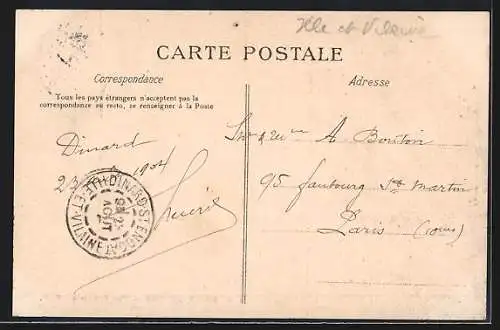 Ille et Vilaine
CARTE POSTALE
Correspondance
Adresse
Tous les pays étrangers n'acceptent pas la
correspondance au recto, se renseigner à la Poste
Dinard
23 1904
A Bouton
95 faubourg St Martin
Paris
DINARD-ST-ENOGAT
ILLE-ET-VILAINE
AOUT